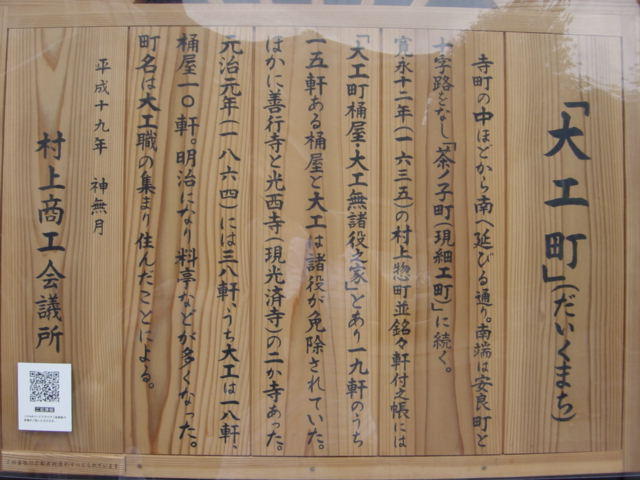 「大工町」(だいくまち)
寺町の中ほどから南へ延びる通り。南端は安良町と
十字路をなし「茶ノ子町(現細工町)」に続く。
寛永十二年(一六三五)の村上惣町並銘々軒付之帳には
「大工町桶屋・大工無諸役之家」とあり一九軒のうち
一五軒ある桶屋と大工は諸役が免除されていた。
ほかに善行寺と光西寺(現光済寺)の二か寺あった。
元治元年(一八六四)には三八軒、うち大工は一八軒、
桶屋一〇軒。明治になり料亭などが多くなった。
町名は大工職の集まり住んだことによる。
平成十九年 神無月
村上商工会議所